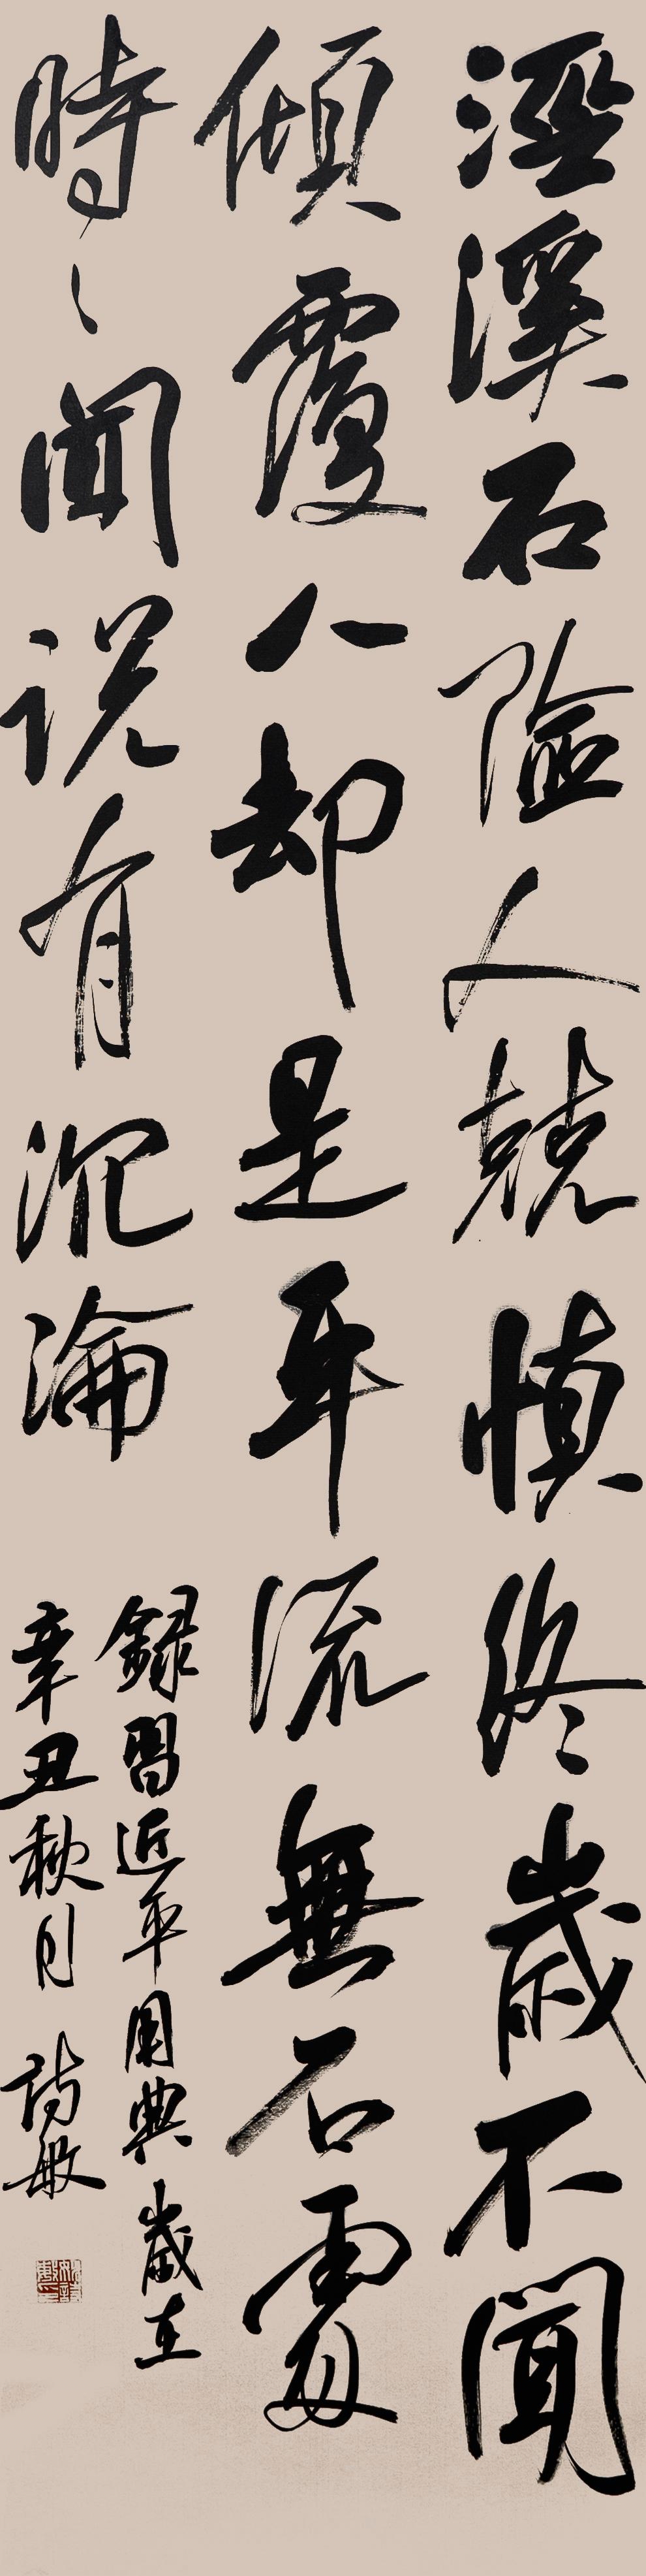 涇溪石險人兢慎終歲不聞
傾覆人却是平流無石處
時〻聞説有沉淪
錄習近平用典 歲在
辛丑秋月 敏